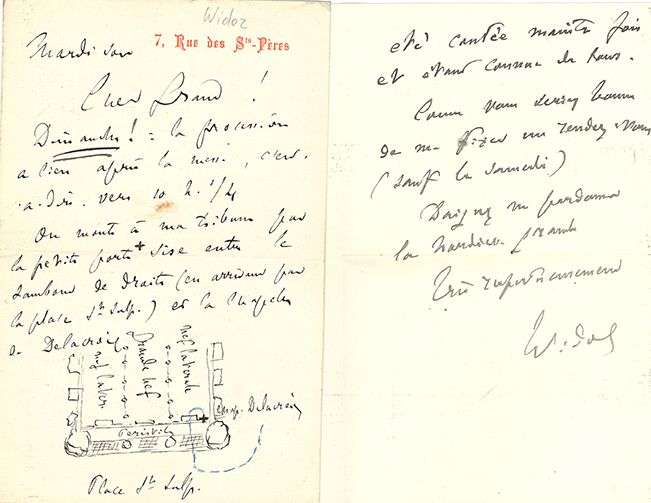 Widor
7, Rue des Sts-Pères
Mardi soir
Cher Grand !
Dimanche ! = la procession
a lieu après la messe, c'est
-à-dire vers 10 h. 1/4
On monte à ma tribune par
la petite porte + sise entre le
tambour de droite (en arrivant par
la place St Sulp.) et la chapelle
Delacroix
nef latér.
Grande nef
nef latérale
chap. Delacroix
Peristyle
Place St Sulp.
été contée mainte fois
et étant connue de tous.
Comme vous seriez bonne
de me fixer un rendez-vous
(sauf le samedi)
Daignez me pardonner
la hardiesse grande
Très respectueusement
Widor